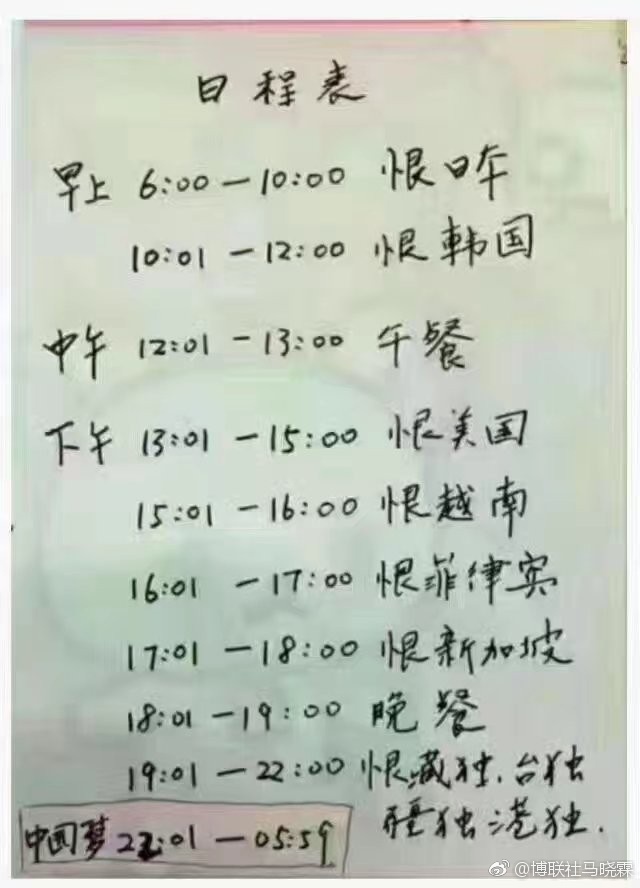 日程表
早上 6:00—10:00 恨日本
10:01—12:00 恨韩国
中午 12:01—13:00 午餐
下午 13:01—15:00 恨美国
15:01—16:00 恨越南
16:01—17:00 恨菲律宾
17:01—18:00 恨新加坡
18:01—19:00 晚餐
19:01—22:00 恨藏独、台独
疆独港独.
中国梦 22:01—05:59
@博联社马晓霖